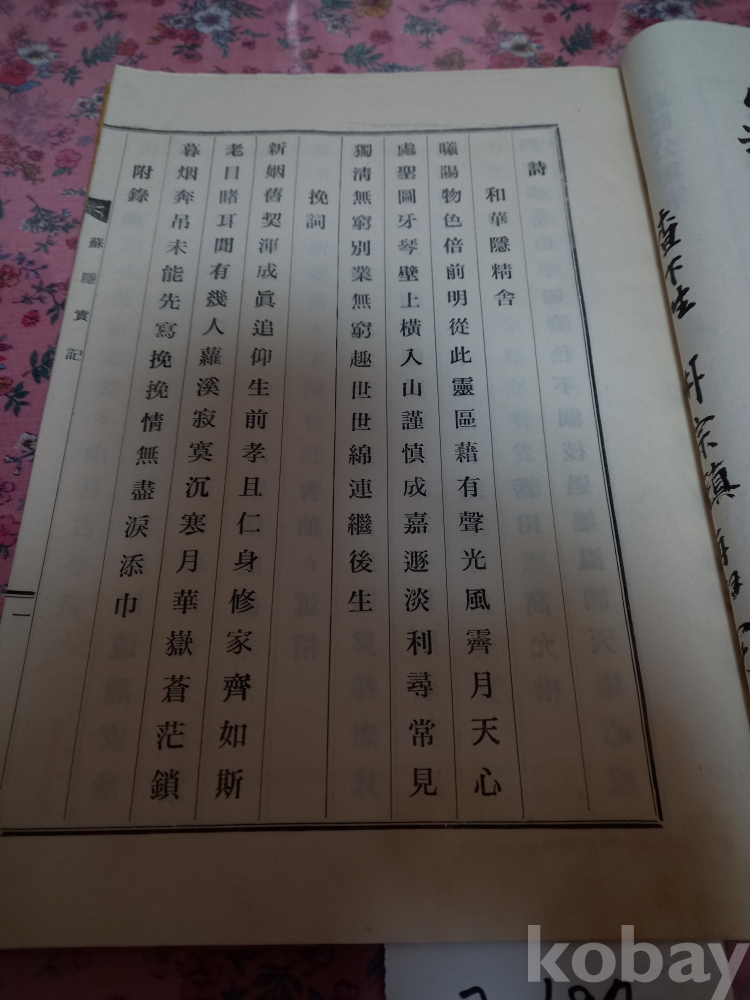 詩
和華隱精舍
曦陽物色倍前明從此靈區藉有聲光風霽月天心
處聖圖牙琴壁上橫入山謹慎成嘉遯淡利尋常見
獨淸無窮別業無窮趣世世綿連繼後生
挽詞
新姻舊契渾成眞追仰生前孝且仁身修家齊如斯
老目睹耳聞有幾人蘿溪寂寞沉寒月華嶽蒼茫鎖
暮烟奔吊未能先寫挽挽情無盡淚添巾
附錄
蘇隱實記
一
査下生
宗鎭
kobay